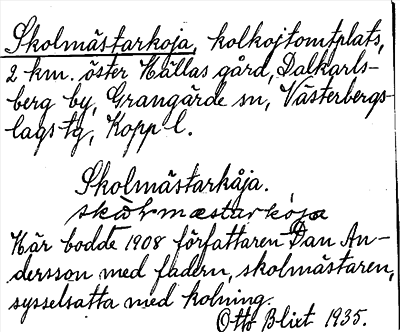 Skolmästarkoja, kolkojtomtplats,
2 km. öster Källas gård, Dalkarls-
berg by, Grangärde sn, Västerbergs-
lags tg, Kopp l.
Skolmästarkåja.
skòlmæstarkója
Här bodde 1908 författaren Dan An-
dersson med fadern, skolmästaren,
sysselsatta med kolning.
Otto Blixt 1935.